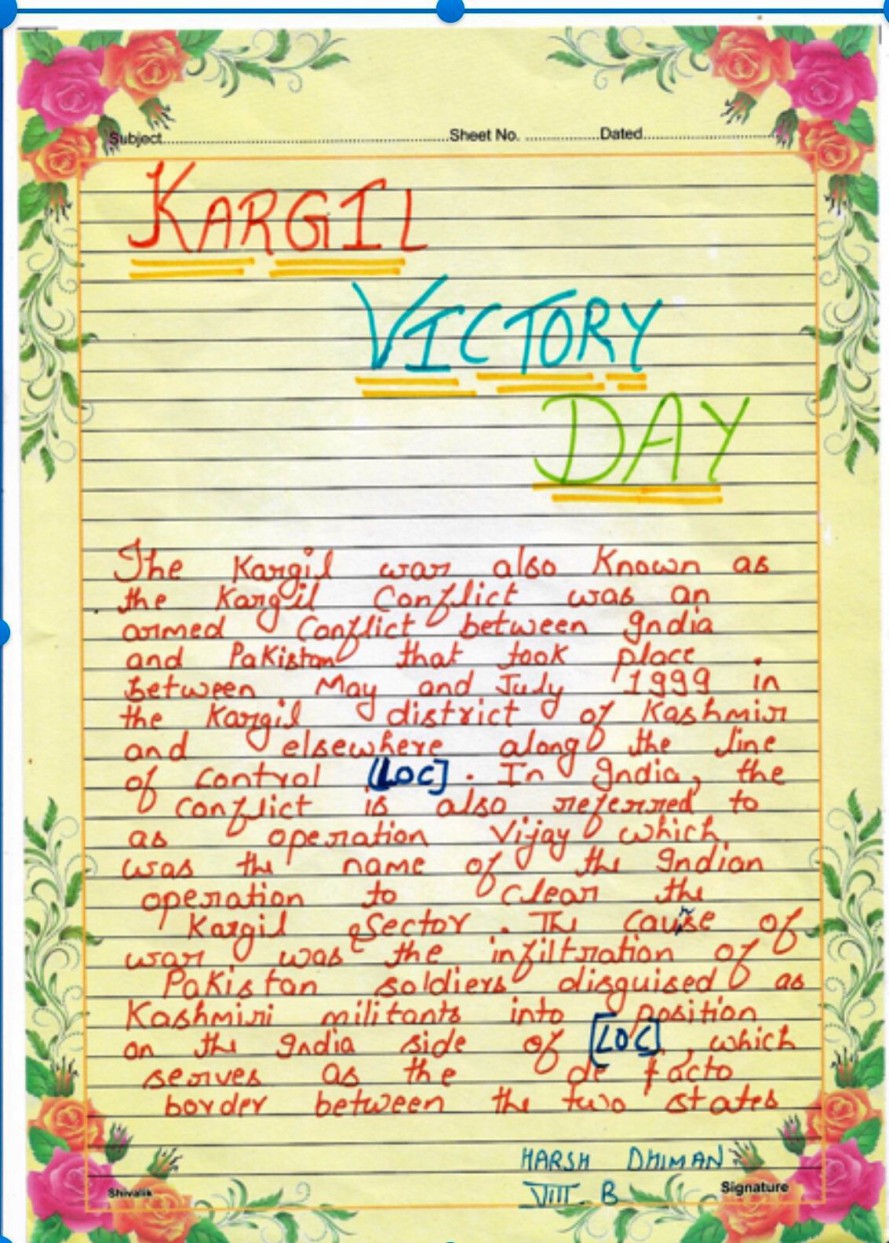 Subject..........Sheet No. ..........Dated..........
KARGIL
VICTORY
DAY
The Kargil war also known as
the Kargil Conflict was an
armed Conflict between India
and Pakistan that took place
between May and July 1999 in
the Kargil district of Kashmir
and elsewhere along the line
of control [LOC]. In India, the
conflict is also referred to
as operation Vijay which
was the name of the Indian
operation to clear the
Kargil Sector. The cause of
war was the infiltration of
Pakistan soldiers disguised as
Kashmiri militants into position
on the India side of [LOC], which
serves as the de facto
border between the two states
HARSH DHIMAN
VIII B
Shivalik
Signature